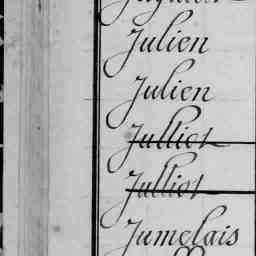 Julien
Julien
Julliot
Julliot
Jumelais